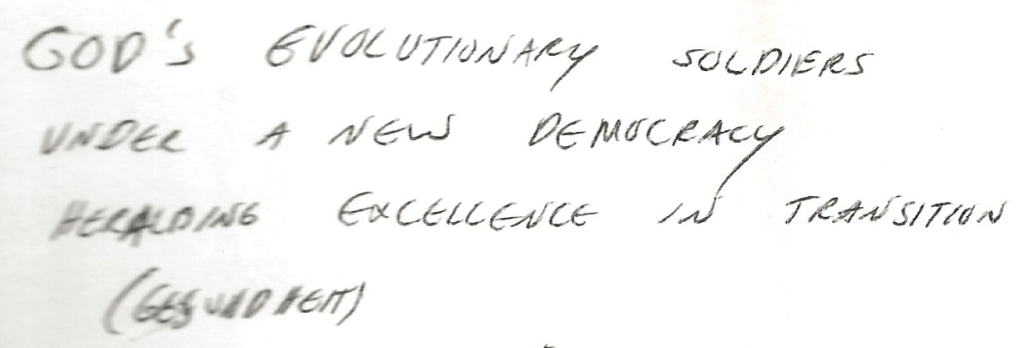 GOD'S EVOLUTIONARY SOLDIERS
UNDER A NEW DEMOCRACY
HERALDING EXCELLENCE IN TRANSITION
(GESUNDHEIT)